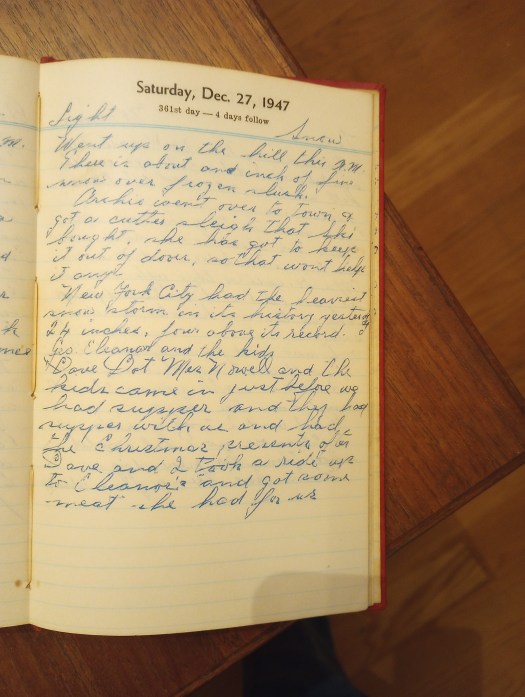 Saturday, Dec. 27, 1947
361st day — 4 days follow
Light Snow
Went up on the hill this A.M.
There is about and inch of fine
snow over frozen slush.
Archie went over to town &
got a cutter sleigh that she
bought, she has got to keep
it out of doors, so that wont help
it any.
New York City had the heaviest
snow storm in its history yesterday
24 inches, four above its record.
Geo. Eleanor and the kids
Dave Dot Mrs Nowell and the
kids came in just before we
had supper and they had
supper with us and had
the Christmas presents
Dave and I took a ride up
to Eleanor's and got some
meat she had for us